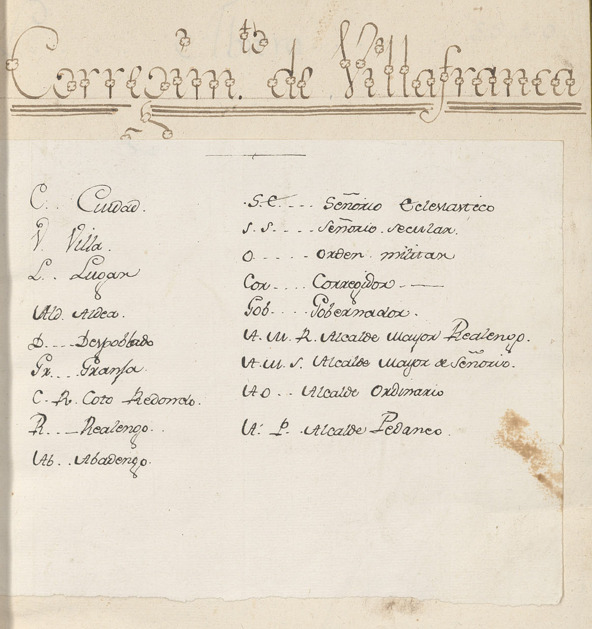 Corregim.to de Villafranca
C.. Ciudad.
V Villa.
L.. Lugar
Ald. Aldea.
D.... Despoblado
Gr... Granja.
C. R. Coto Redondo.
R.... Realengo..
Ab... Abadengo.
S. E..... Señorio Eclesiastico
S. S..... Señorio. secular.
O...... Orden militar
Cor.... Corregidor
Gob..... Gobernador.
A. M. R. Alcalde Mayor Realengo.
A. M. S. Alcalde Mayor de Señorio.
A O... Alcalde Ordinario
A. P.. Alcalde Pedaneo.